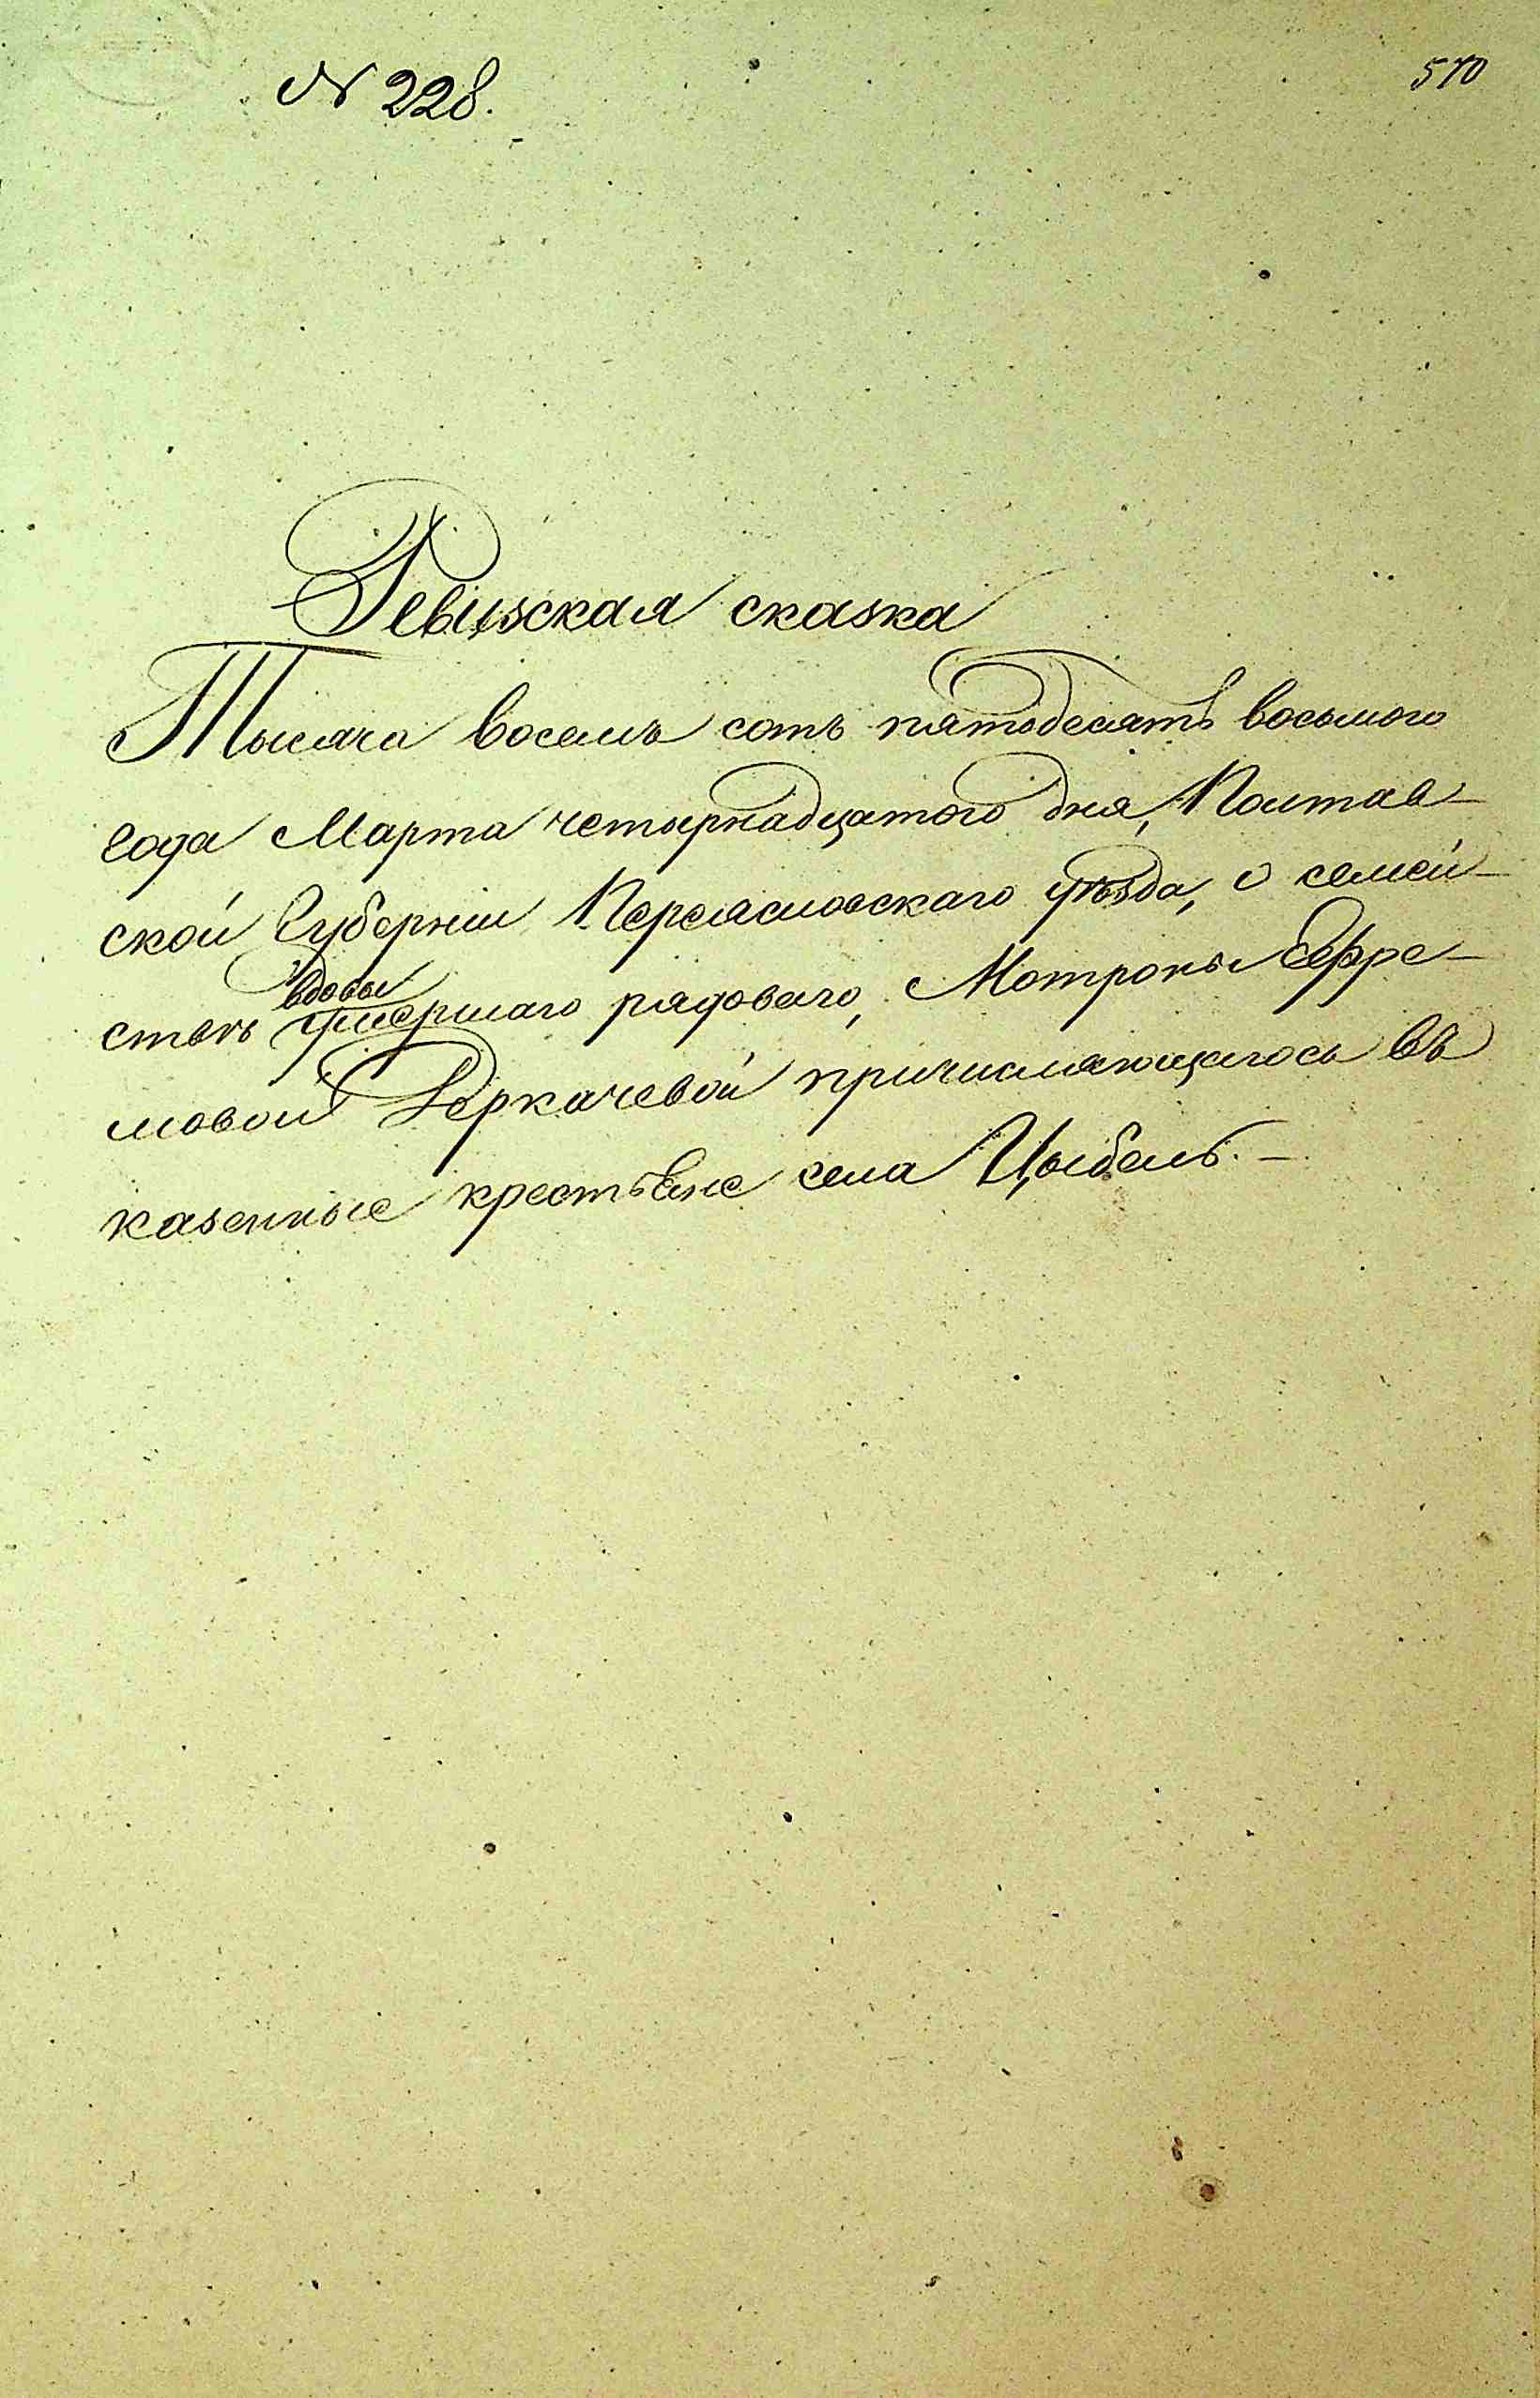 № 228.
570
Ревизская сказка
Тысяча восемь сотъ пятьдесятъ восьмого
года Марта четырнадцатого дня, Полтав-
ской Губерніи Переясловскаго уѣзда, о семей-
вдовы
ствѣ умершаго рядоваго, Мотроны Ефре-
мовой Деркачевой причисляющагося въ
казенные крестьяне села Цыбель. —